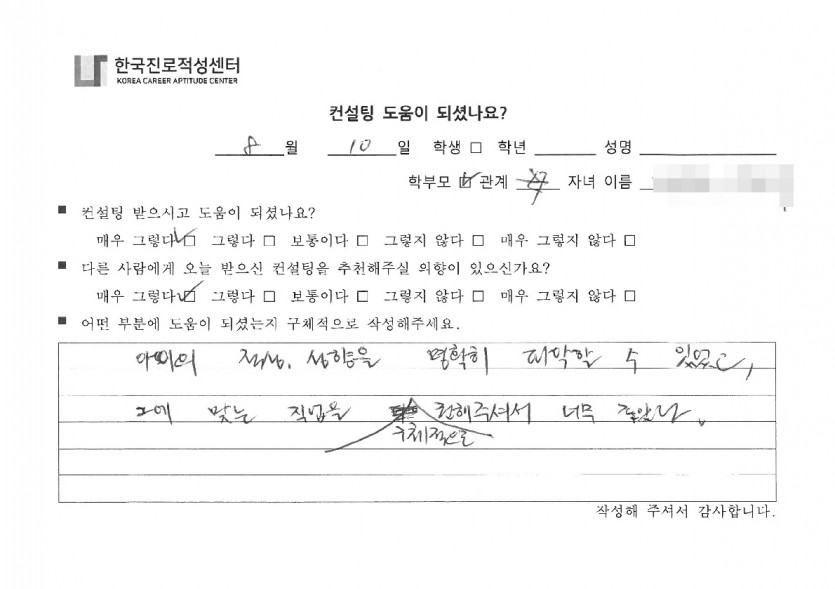 한국진로적성센터
KOREA CAREER APTITUDE CENTER
컨설팅 도움이 되셨나요?
8 월 10 일 학생 □ 학년 성명
학부모 ☑ 관계 자녀 이름
■ 컨설팅 받으시고 도움이 되셨나요?
매우 그렇다 ☑ 그렇다 □ 보통이다 □ 그렇지 않다 □ 매우 그렇지 않다 □
■ 다른 사람에게 오늘 받으신 컨설팅을 추천해주실 의향이 있으신가요?
매우 그렇다 ☑ 그렇다 □ 보통이다 □ 그렇지 않다 □ 매우 그렇지 않다 □
■ 어떤 부분에 도움이 되셨는지 구체적으로 작성해주세요.
아이의 적성, 성향을 명확히 파악할 수 있었고,
그에 맞는 직업을 권해주셔서 너무 좋았다.
구체적으로
작성해 주셔서 감사합니다.